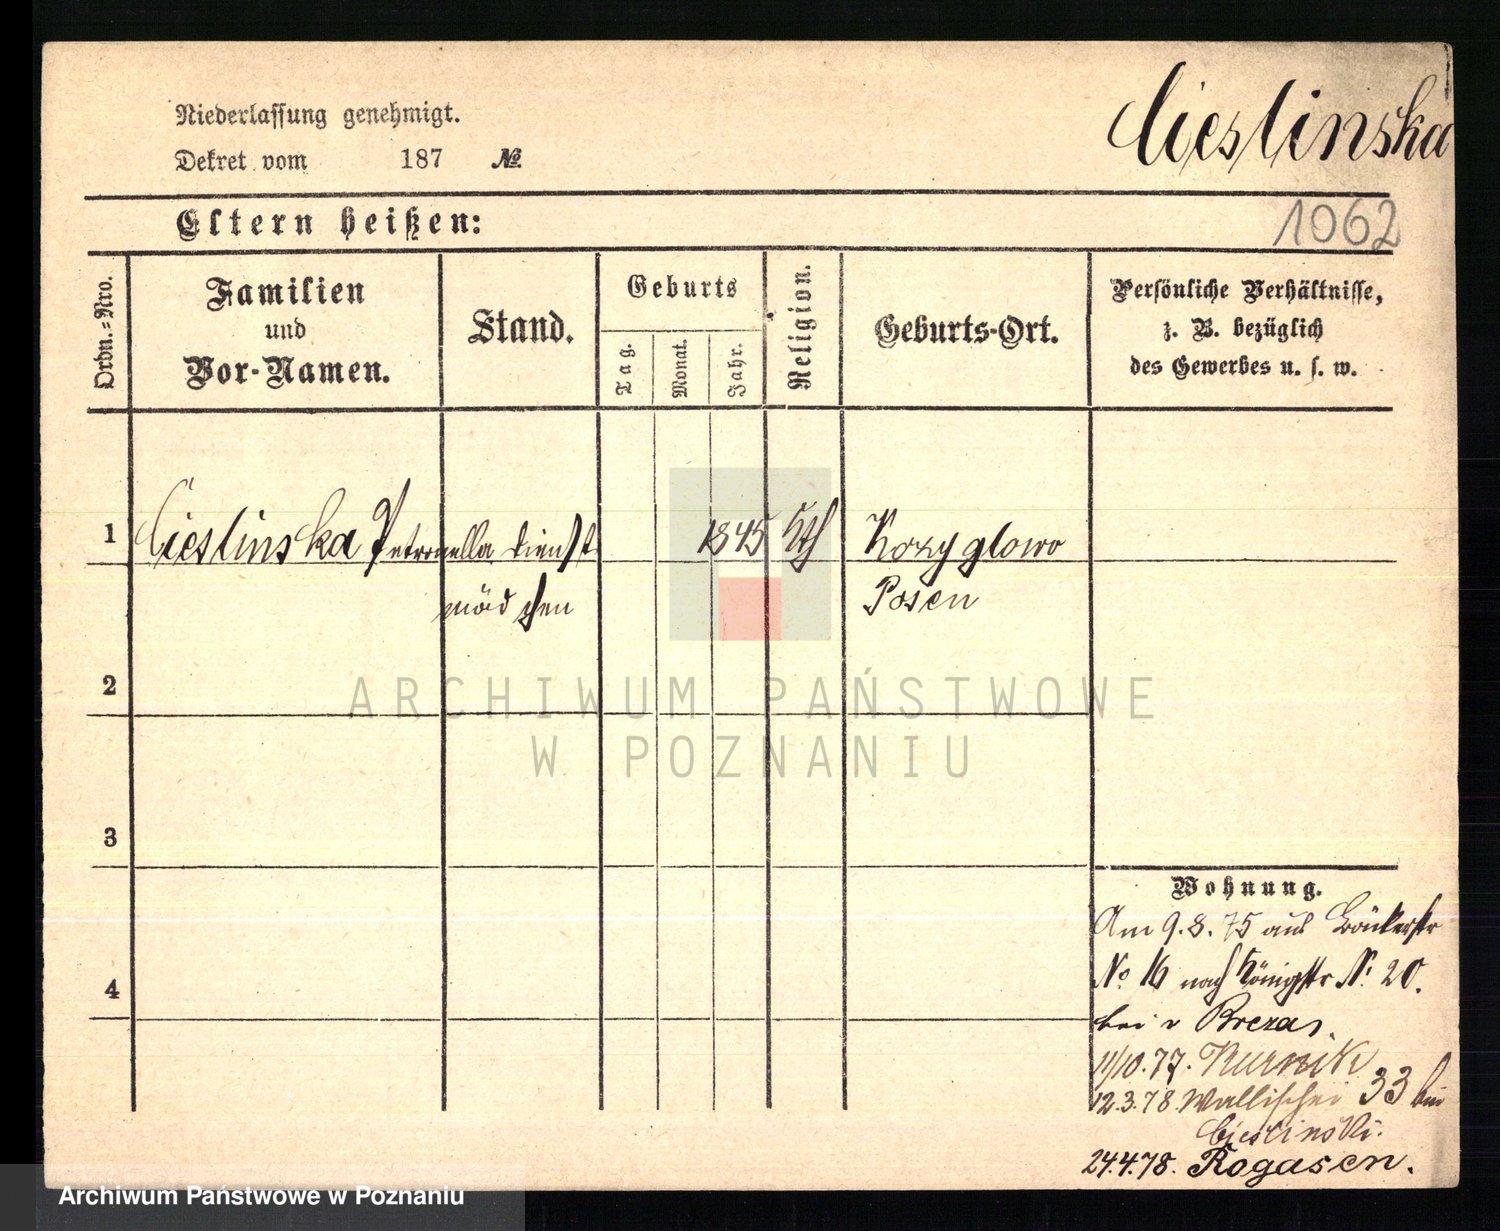 Niederlassung genehmigt.
Dekret vom 187 №
Cieslinska
1062
Eltern heißen:
Ordn.-Nro.
Familien
und
Vor-Namen.
Stand.
Geburts
Tag.
Monat.
Jahr.
Religion.
Geburts-Ort.
Persönliche Verhältnisse,
z. B. bezüglich
des Gewerbes u. s. w.
1 Cieslinska Petronella Dienst 1845 Kth Kozyglowo
mädchen Posen
2
3
4
Wohnung.
Am 9.8.75 aus Bäckerstr
No 16 nach Königstr N: 20.
bei v
11/10.77. Kurnik
12.3.78. Wallischei 33 bei
Cieslinski.
24.4.78. Rogasen.
ARCHIWUM PAŃSTWOWE
W POZNANIU
Archiwum Państwowe w Poznaniu